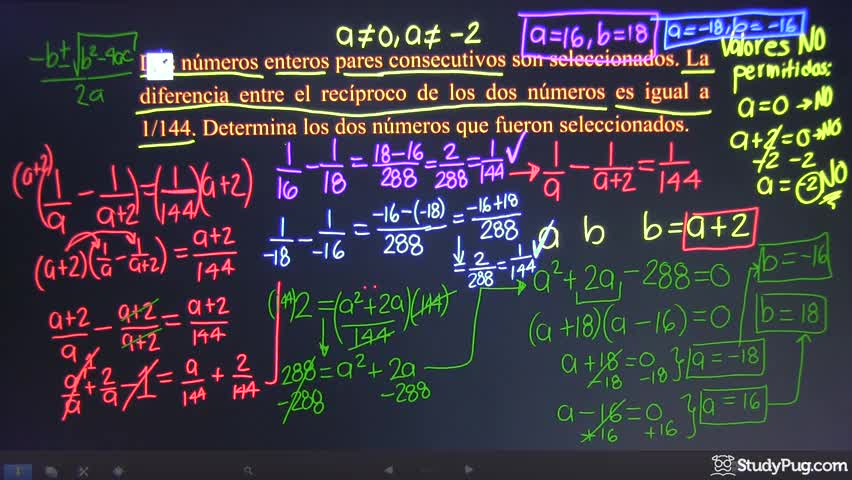 a≠0, a≠-2
a=16, b=18
a=-18, b=-16
-b±√b²-4ac
2a
números enteros pares consecutivos son seleccionados. La
diferencia entre el recíproco de los dos números es igual a
1/144. Determina los dos números que fueron seleccionados.
Valores NO
permitidos:
a=0→NO
a+2=0→NO
-2 -2
a=-2 NO
1/16 - 1/18 = 18-16/288 = 2/288 = 1/144 ✓
→ 1/a - 1/a+2 = 1/144
(a+2)(1/a - 1/a+2) = (1/144)(a+2)
(a+2)(1/a - 1/a+2) = a+2/144
a+2/a - a+2/a+2 = a+2/144
a/a + 2/a - 1 = a/144 + 2/144
1/-18 - 1/-16 = -16-(-18)/288 = -16+18/288
= 2/288 = 1/144 ✓
a b b = a+2
(144)2 = (a²+2a/144)(144)
288 = a² + 2a
-288 -288
a² + 2a - 288 = 0
(a+18)(a-16) = 0
a+18 = 0 } a = -18
-18 -18
a-16 = 0 } a = 16
+16 +16
b = -16
b = 18
StudyPug.com